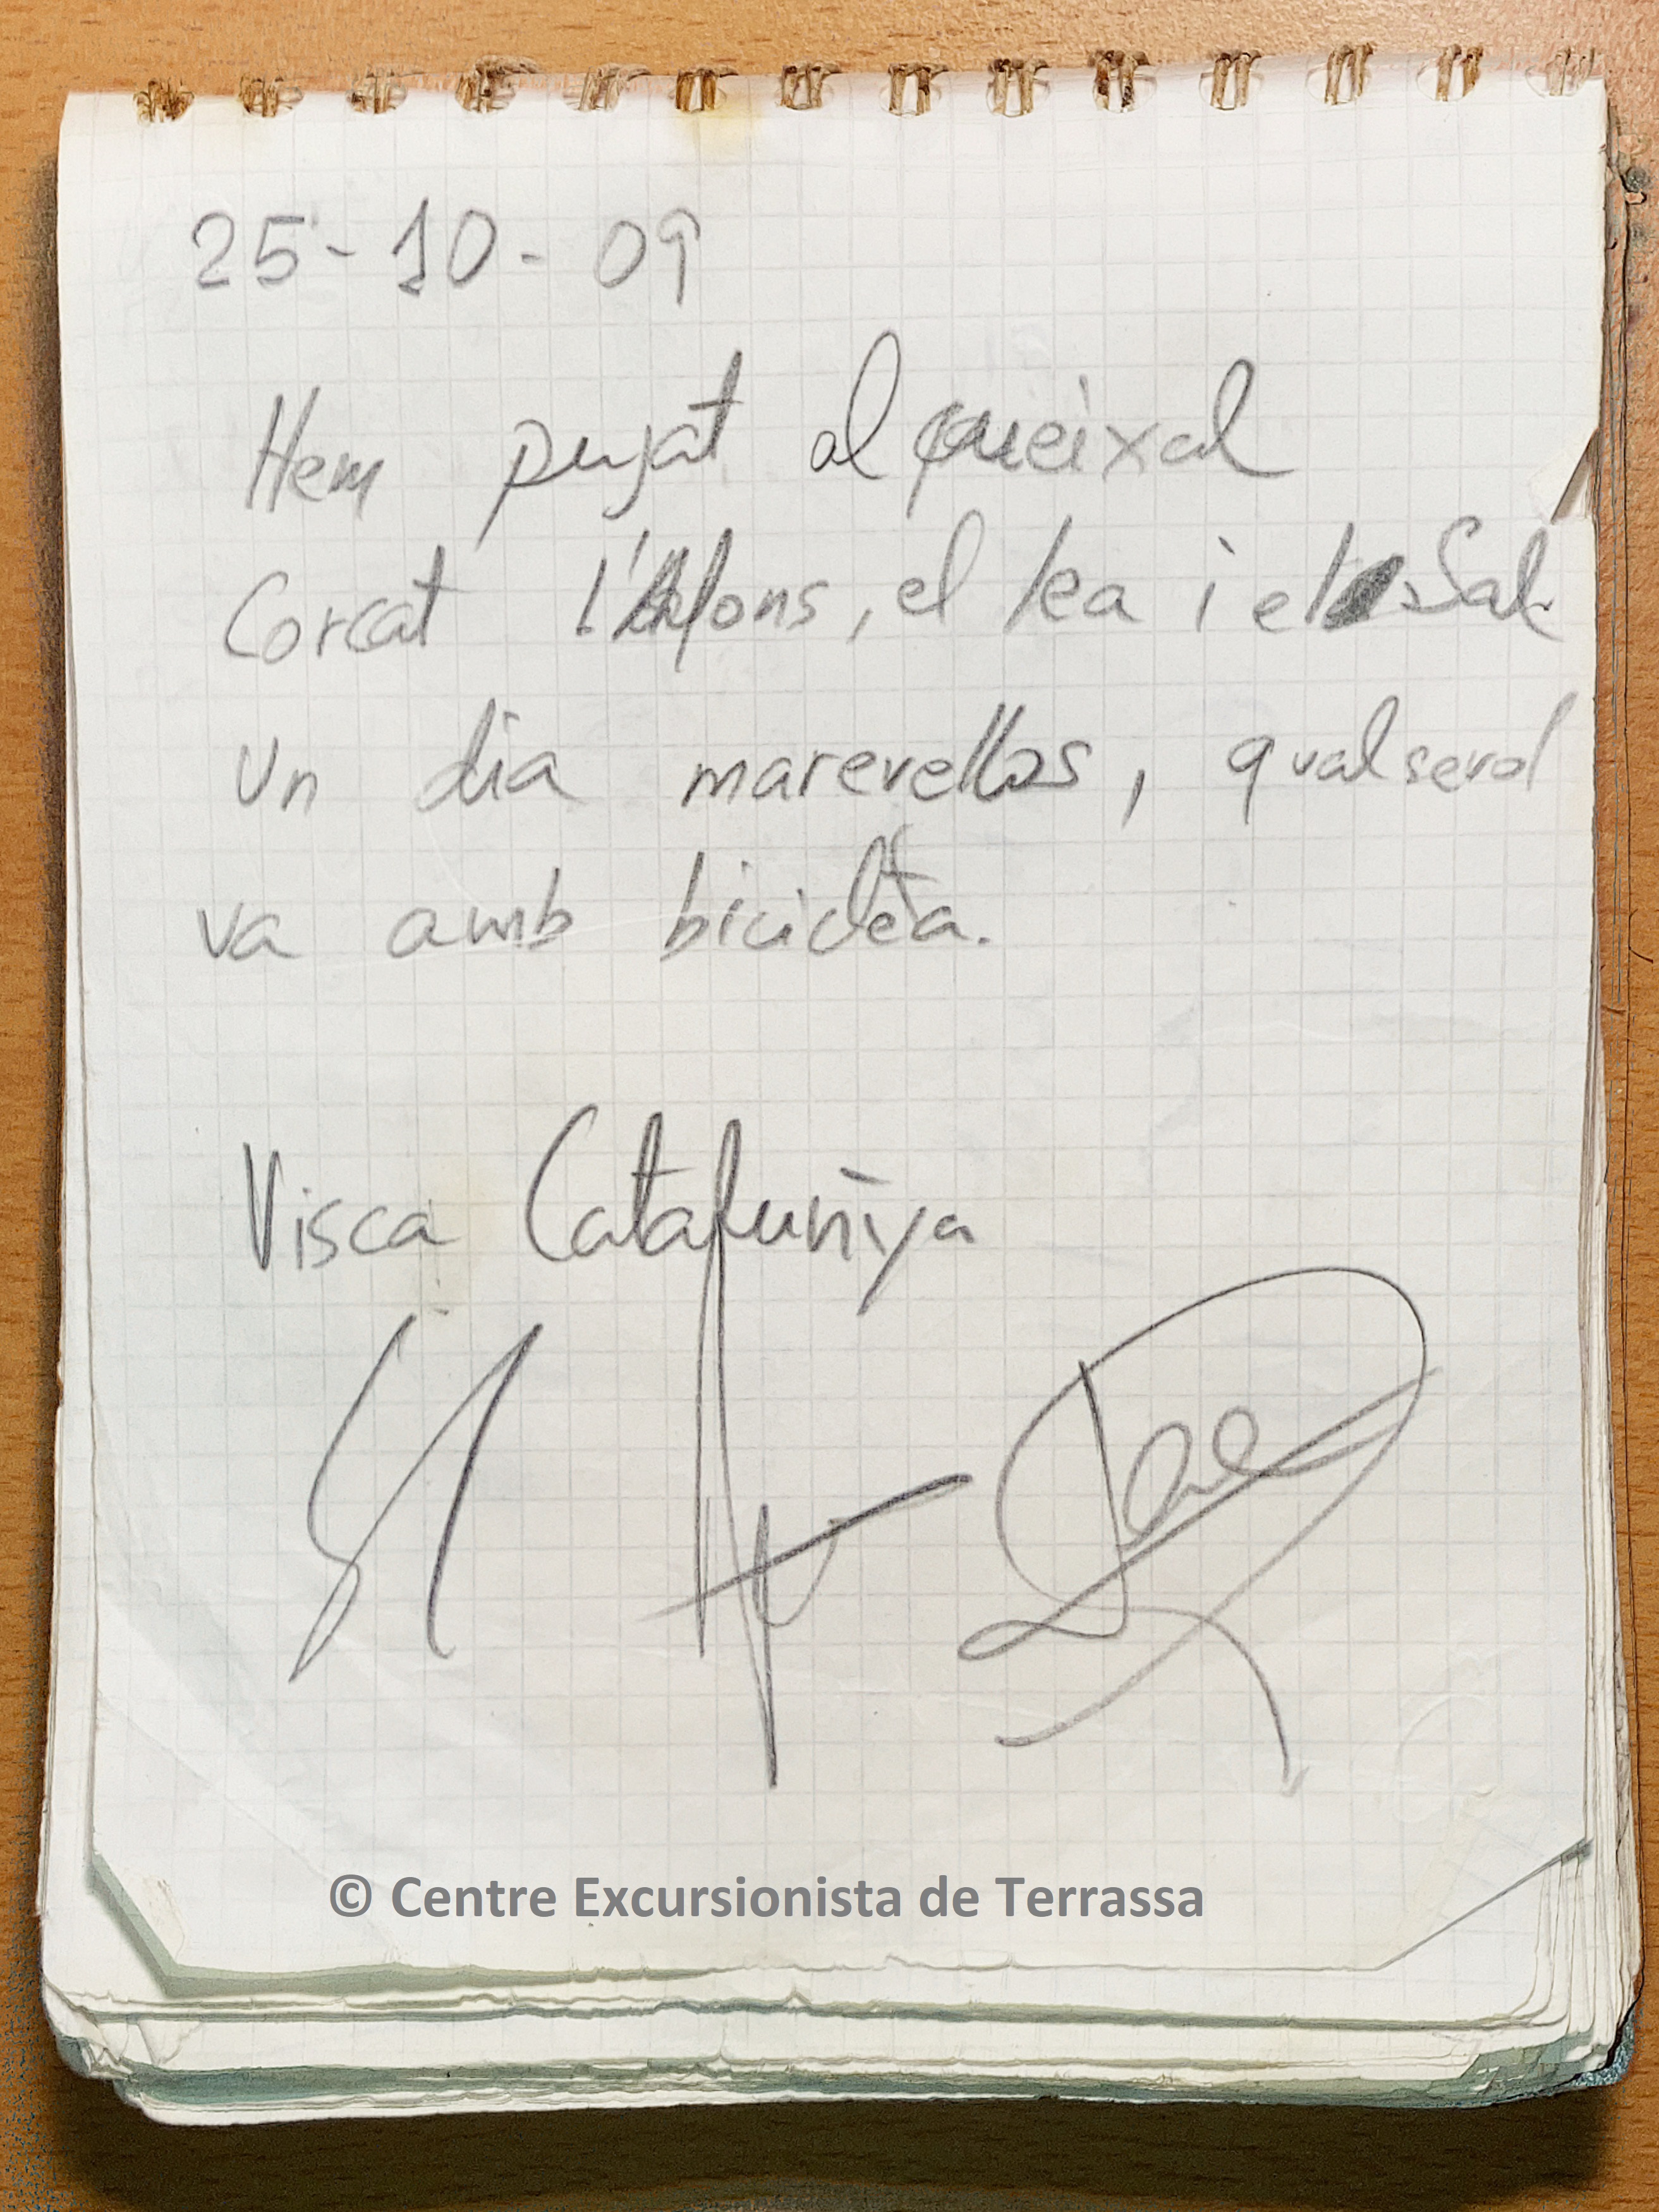 25-10-09
Hem pujat al queixal
Corcat l'Alfons, el kea i el Sal.
Un dia marevellos, qualsevol
va amb bicicleta.
Visca Cataluñya
© Centre Excursionista de Terrassa